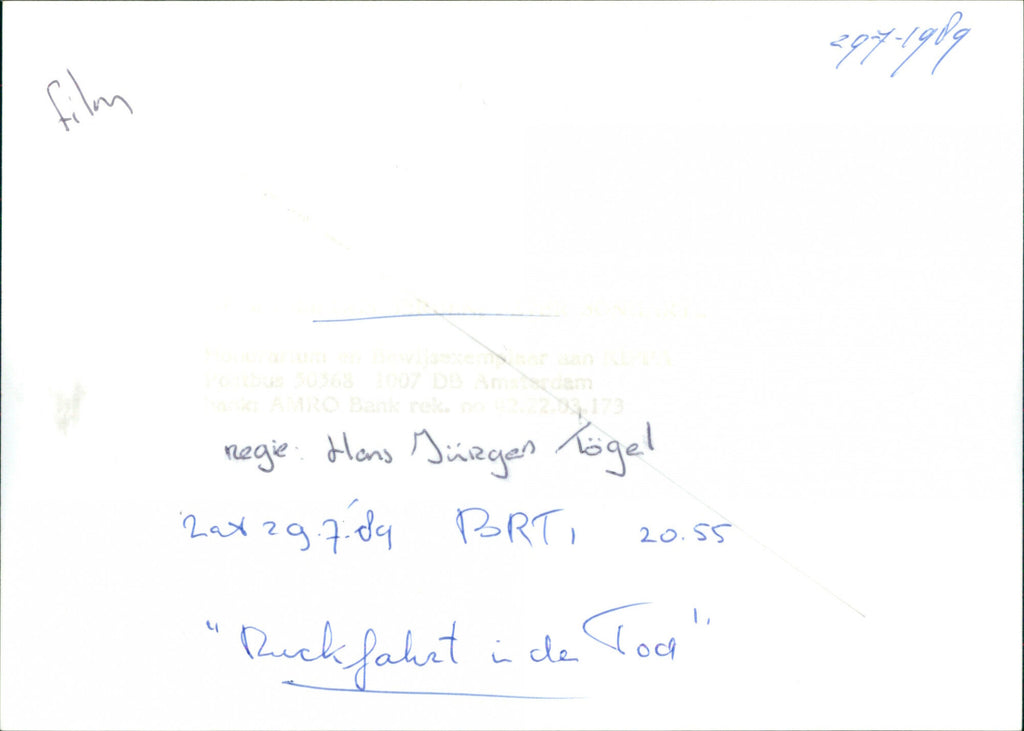 29-7-1989
film
Honorarium en Bewijsexemplaar aan
Postbus 50568 1007 DB Amsterdam
bank: AMRO Bank rek. no 42.22.03.173
regie: Hans Jürgen Tögel
Zat 29.7.'89 BRT1 20.55
"Ruckfahrt in den Tod"